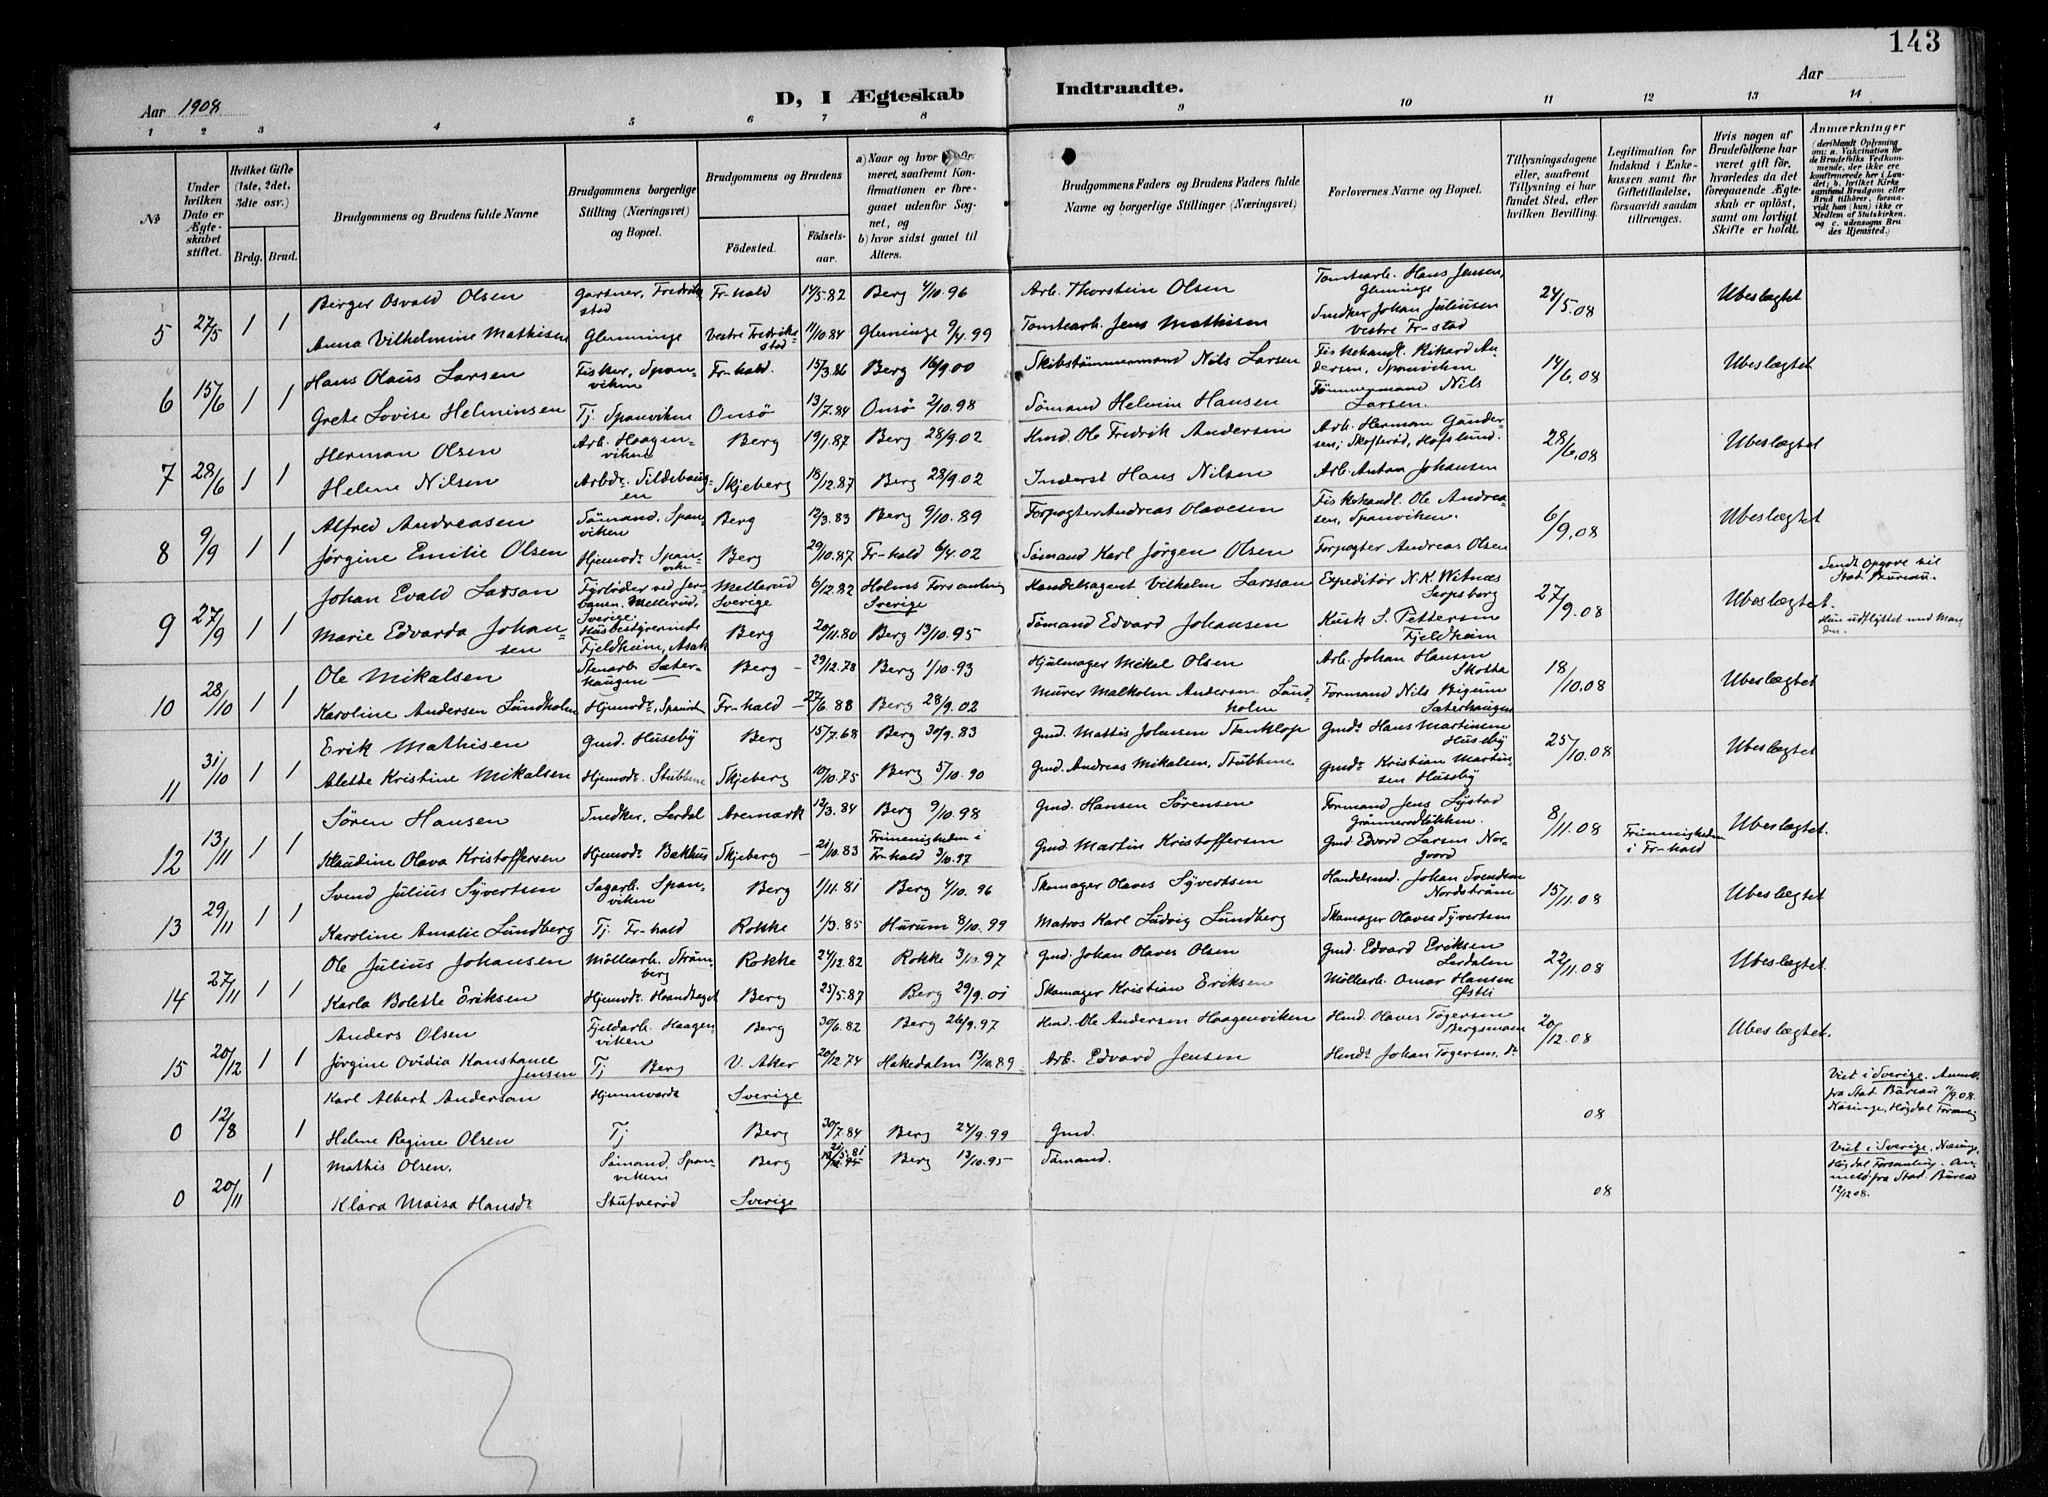 143
Aar 1908 D, I Ægteskab Indtraadte. Aar
1 2 3 4 5 6 7 8 9 10 11 12 13 14
No
Under hvilken Dato er Ægteskabet stiftet.
Hvilket Gifte (1ste, 2det, 3die osv.)
Brdg. Brud.
Brudgommens og Brudens fulde Navne
Brudgommens borgerlige Stilling (Næringsvei) og Bopæl.
Brudgommens og Brudens
Fødested. Fødselsaar.
a) Naar og hvor konfirmeret, saafremt Konfirmationen er foregaaet udenfor Sognet, og
b) hvor sidst gaaet til Alters.
Brudgommens Faders og Brudens Faders fulde Navne og borgerlige Stillinger (Næringsvei)
Forlovernes Navne og Bopæl.
Tillysningsdagene eller, saafremt Tillysning ei har fundet Sted, efter hvilken Bevilling.
Legitimation for Indskud i Enkekassen samt for Giftetilladelse, forsaavidt saadan tiltrænges.
Hvis nogen af Brudefolkene har været gift før, hvorledes da det foregaaende Ægteskab er opløst, samt om lovligt Skifte er holdt.
Anmærkninger (deriblandt Oplysning om: a. Vakcination for de Brudefolks Vedkommende, der ikke ere konfirmerede her i Landet; b. hvilket Kirkesamfund Brudgom eller Brud tilhører, forsaavidt han (hun) ikke er Medlem af Statskirken, og c. udensogns Brudes Hjemsted.)
5 27/5 1 1 Birger Osvald Olsen Gartner, Fredrikstad Fr-hald 14/5.82 Berg 4/10.96 Arb. Thorstein Olsen Tomtearb. Hans Jensen, Glemminge 24/5.08 Ubeslægtet
Anna Vilhelmine Mathisen Glemminge Vestre Fredrikstad 11/10.84 Glemminge 9/4.99 Tomtearb. Jens Mathisen Snedker Johan Juliusen vestre Fr-stad
6 15/6 1 1 Hans Olaus Larsen Fisker, Sponviken Fr-hald. 15/3.86 Berg 16/9.00 Skibstømmermand Nils Larsen Fiskehandl. Rikard Andersen, Sponviken 14/6.08 Ubeslægtet
Grete Lovise Helminsen Tj. Sponviken Onsø 13/7.84 Onsø 2/10.98 Sømand Helmin Hansen Tømmermand Nils Larsen.
7 28/6 1 1 Herman Olsen Arb. Haagenviken Berg 19/1.87 Berg 28/9.02 Hmd. Ole Fredrik Andersen Arb. Herman Gundersen, Skofterød, Hafslund. 28/6.08 Ubeslægtet
Helene Nilsen Skjeberg 18/12.87 Berg 28/9.02 Inderst Hans Nilsen Arb. Anton Johansen
8 9/9 1 1 Alfred Andreasen Sømand, Sponviken Berg 12/3.83 Berg 9/10.89 Forpagter Andreas Olavesen Fiskehandl. Ole Andreasen, Sponviken. 6/9.08 Ubeslægtet
Jørgine Emilie Olsen Hjemvd. Sponviken Berg 29/10.87 Fr-hald 6/4.02 Sømand Karl Jørgen Olsen Forpagter Andreas Olsen
9 27/9 1 1 Johan Evald Larson Fyrbøder ved Jernbanen. Mellerud, Sverige Mellerud Sverige 6/12.82 Holms Forsamling Sverige Handelsagent Vilhelm Larsson Expeditør N.K. Witnæs Sarpsborg 27/9.08 Ubeslægtet Sendt Opgave til Stat. Bureau.
Marie Edvarda Johansen Husbestyrerinde Fjeldheim, Asak Berg 20/11.80 Berg 13/10.95 Sømand Edvard Johansen Kusk S. Pettersen Fjeldheim Hun udflyttet med Manden.
10 28/10 1 1 Ole Mikalsen Stenarb. Sæterhaugen Berg 29/12.78 Berg 1/10.93 Hjulmager Mikal Olsen Arb. Johan Hansen 18/10.08 Ubeslægtet
Karoline Andersen Lundholm Hjemvd., Sponvik Fr-hald 27/6.88 Berg 28/9.02 Murer Malkolm Andersen Lundholm Formand Nils Bigum Sæterhaugen
11 31/10 1 1 Erik Mathisen Gmd. Huseby Berg 15/7.68 Berg 30/9.83 Gmd. Mattis Johansen Stenklop Gmd. Hans Martinsen Huseby 25/10.08 Ubeslægtet
Alette Kristine Mikalsen Hjemvd. Stubbene Skjeberg 10/10.75 Berg 5/10.90 Gmd. Andreas Mikalsen, Stubbene Gmd. Kristian Martinsen Huseby
12 13/11 1 1 Søren Hansen Snedker, Lerdal Aremark 12/3.84 Berg 9/10.98 Gmd. Hansen Sørensen Formand Jens Lystad 8/11.08 Frimenigheden i Fr-hald Ubeslægtet.
Klaudine Olava Kristoffersen Hjemvd. Bakhus Skjeberg 21/10.83 Frimenigheden i Fr-hald 3/10.97 Gmd. Martin Kristoffersen Gmd. Edvard Larsen Norgord
13 29/11 1 1 Svend Julius Syvertsen Sagarb. Sponviken Berg 1/11.81 Berg 4/10.96 Skomager Olaves Syvertsen Handelsmd. Johan Svendsen Nordstrøm 15/11.08 Ubeslægtet
Karoline Amalie Lundberg Tj. Fr-hald Rokke 1/3.85 Hurum 8/10.99 Matros Karl Ludvig Lundberg Skomager Olaves Syvertsen
14 27/11 1 1 Ole Julius Johansen Møllearb. Strømberg Rokke 24/12.82 Rokke 3/10.97 Gmd. Johan Olaves Olsen Gmd. Edvard Eriksen Lerdalen 22/11.08 Ubeslægtet
Karla Bolette Eriksen Hjemvd. Berg 25/5.87 Berg 29/9.01 Skomager Kristian Eriksen Møllearb. Omar Hansen Østli
15 20/12 1 1 Anders Olsen Fjeldarb. Haagenviken Berg 30/6.82 Berg 26/9.97 Hmd. Ole Andersen Haagenviken Hmd. Olaves Tøgersen Bergsmoen 20/12.08 Ubeslægtet.
Jørgine Ovidia Konstance Jensen Tj Berg V. Aker 20/12.74 Hakedalen 13/10.89 Arb. Edvard Jensen Hmd. Johan Tøgersen, do
0 12/8 1 Karl Albert Anderson Hjemmands Sverige 08 Viet i Sverige. Anmeldt fra Stat. Büreau 11/9.08. Näsinge, Högdal Forsamlig
Helene Regine Olsen Tj Berg 30/7.84 Berg 24/9.99 Gmd.
0 20/11 1 Mathis Olsen. Sømand, Sponviken Berg 21/5.81 Berg 13/10.95 Sømand. 08 Viet i Sverige, Næsinge, Högdal Forsamling. Anmeld. fra Stat. Büreau 12/12 08.
Klara Maisa Hansdr Stufverød Sverige